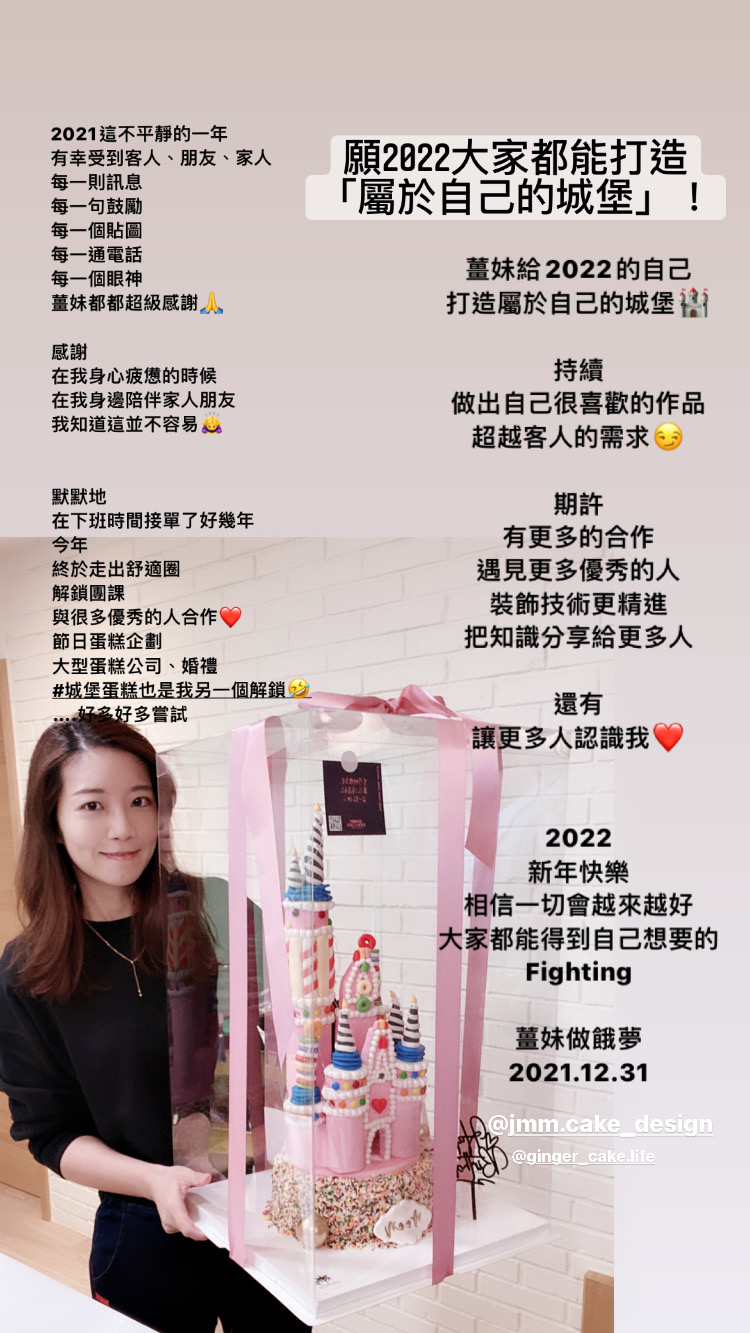 2021這不平靜的一年
有幸受到客人、朋友、家人
每一則訊息
每一句鼓勵
每一個貼圖
每一通電話
每一個眼神
薑妹都都超級感謝🙏
感謝
在我身心疲憊的時候
在我身邊陪伴家人朋友
我知道這並不容易🙇‍♀️
默默地
在下班時間接單了好幾年
今年
終於走出舒適圈
解鎖團課
與很多優秀的人合作❤️
節日蛋糕企劃
大型蛋糕公司、婚禮
#城堡蛋糕也是我另一個解鎖🤣
....好多好多嘗試
願2022大家都能打造
「屬於自己的城堡」！
薑妹給2022的自己
打造屬於自己的城堡🏰
持續
做出自己很喜歡的作品
超越客人的需求😏
期許
有更多的合作
遇見更多優秀的人
裝飾技術更精進
把知識分享給更多人
還有
讓更多人認識我❤️
2022
新年快樂
相信一切會越來越好
大家都能得到自己想要的
Fighting
薑妹做餓夢
2021.12.31
@jmm.cake_design
@ginger_cake.life